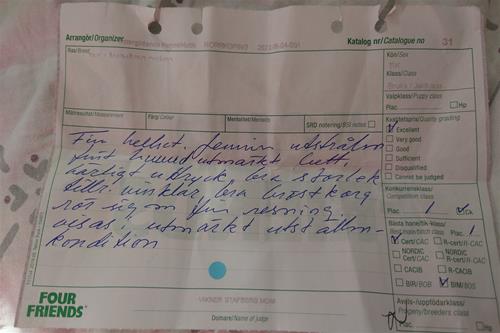 Arrangör/Organizer
NORRKÖPING
Katalog nr/Catalogue no 31
Ras/Breed
Kön/Sex
Tik
Klass/Class
Valpklass/Puppy class
Plac
Hp
Mätresultat/Measurement
Färg/Colour
Mentalitet/Mentality
SRD notering/BSI notes
Kvalitetspris/Quality grading
Excellent
Very good
Good
Sufficient
Disqualified
Cannot be judged
Fin helhet. feminin utstrålning
fint huvud utmärkt bett,
härligt uttryck, bra
tillr. vinklar bra bröstkorg
rör sig m fin resning.
visas i utmärkt utställn-
kondition
Konkurrensklass/
Competition class
Plac 1
CK
Bästa hane/tik-klass/
Best male/bitch class
Plac. 1
Cert/CAC
R-cert/R-CAC
NORDIC
Cert/CAC
NORDIC
R-CAC
CACIB
R-CACIB
BIR/BOB
BIM/BOS
Avels-/uppfödarklass/
Progeny/breeders class
Plac
FOUR
FRIENDS
Domare/Name of judge